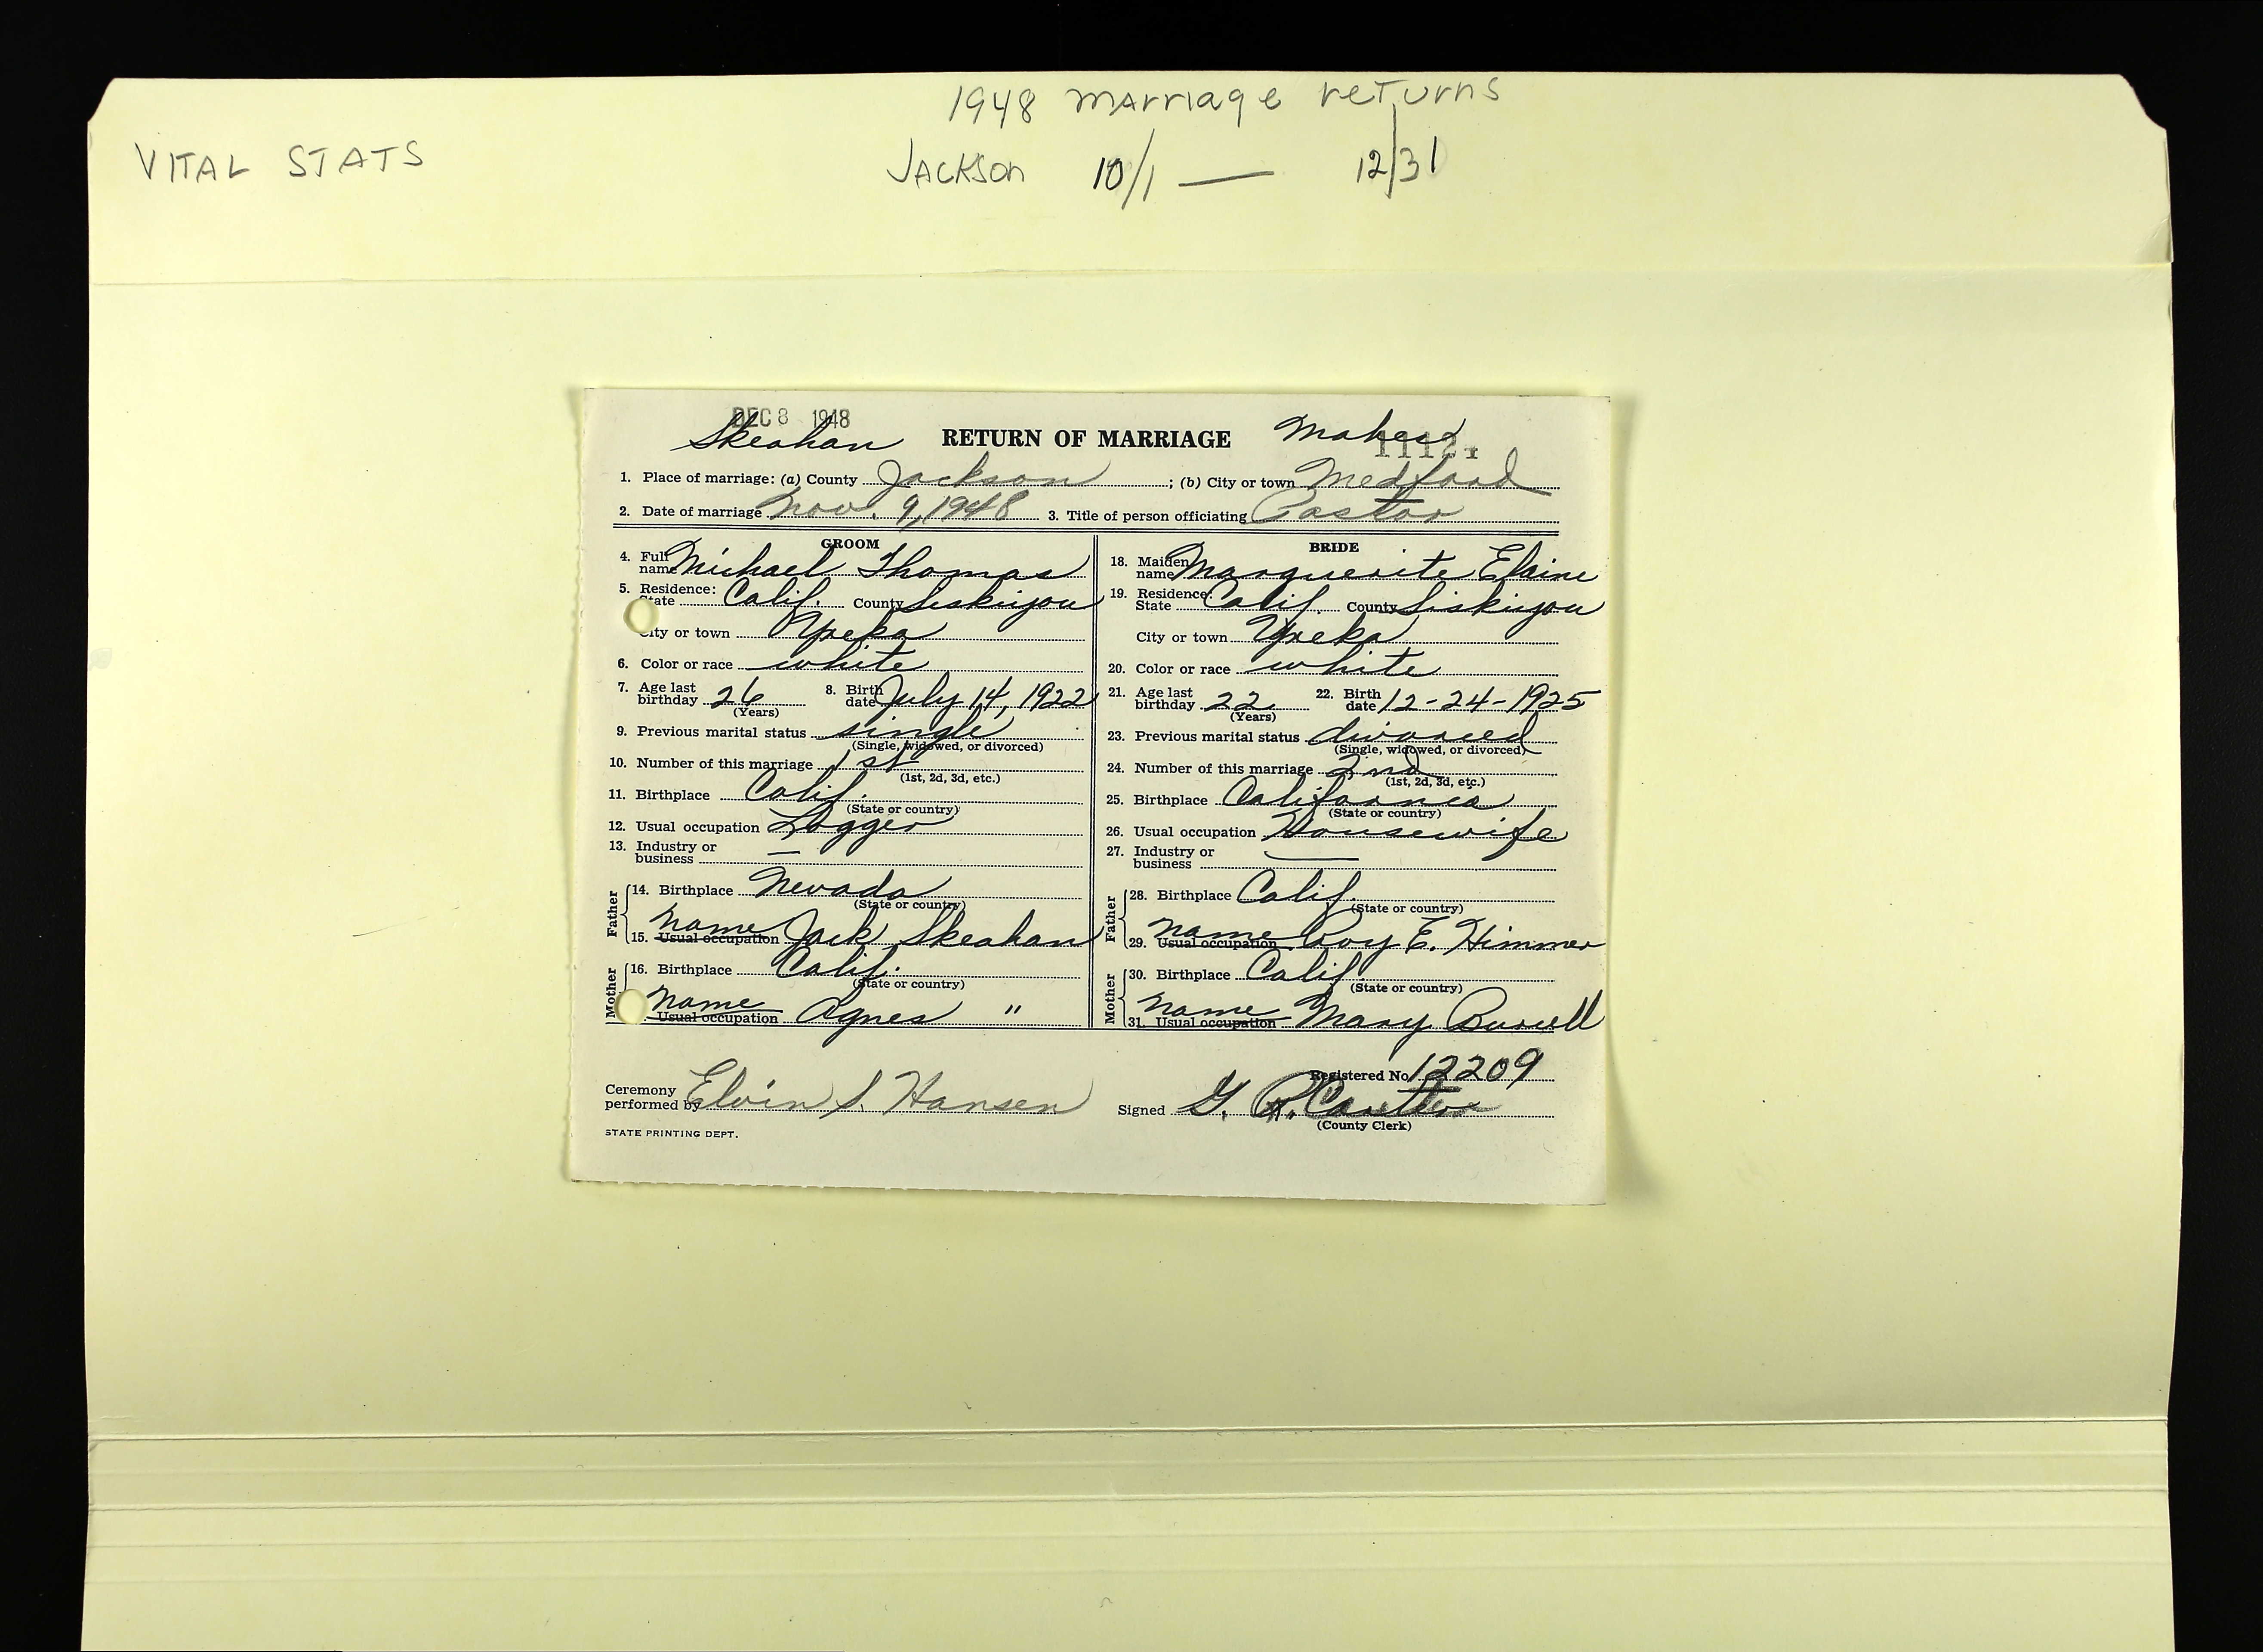 1948 marriage returns
VITAL STATS
Jackson 10/1 — 12/31
DEC 8 1948
Skeahan RETURN OF MARRIAGE Maher
1. Place of marriage: (a) County Jackson ; (b) City or town Medford
2. Date of marriage Nov. 9, 1948 3. Title of person officiating Pastor
GROOM
4. Full name Michael Thomas
5. Residence: State Calif. County Siskiyou
City or town Yreka
6. Color or race white
7. Age last birthday 26 (Years) 8. Birth date July 14, 1922
9. Previous marital status single
(Single, widowed, or divorced)
10. Number of this marriage 1st
(1st, 2d, 3d, etc.)
11. Birthplace Calif.
(State or country)
12. Usual occupation Logger
13. Industry or business —
Father
14. Birthplace Nevada
(State or country)
name
15. Usual occupation Jack Skeahan
Mother
16. Birthplace Calif.
(State or country)
name
Usual occupation Agnes "
BRIDE
18. Maiden name Marguerite Elaine
19. Residence: State Calif. County Siskiyou
City or town Yreka
20. Color or race white
21. Age last birthday 22 (Years) 22. Birth date 12-24-1925
23. Previous marital status divorced
(Single, widowed, or divorced)
24. Number of this marriage 2nd
(1st, 2d, 3d, etc.)
25. Birthplace California
(State or country)
26. Usual occupation Housewife
27. Industry or business —
Father
28. Birthplace Calif.
(State or country)
name
29. Usual occupation Roy E. Himmer
Mother
30. Birthplace Calif.
(State or country)
name
31. Usual occupation Mary
Registered No. 12209
Ceremony performed by Elvin S. Hansen
Signed G. R. Carter
(County Clerk)
STATE PRINTING DEPT.